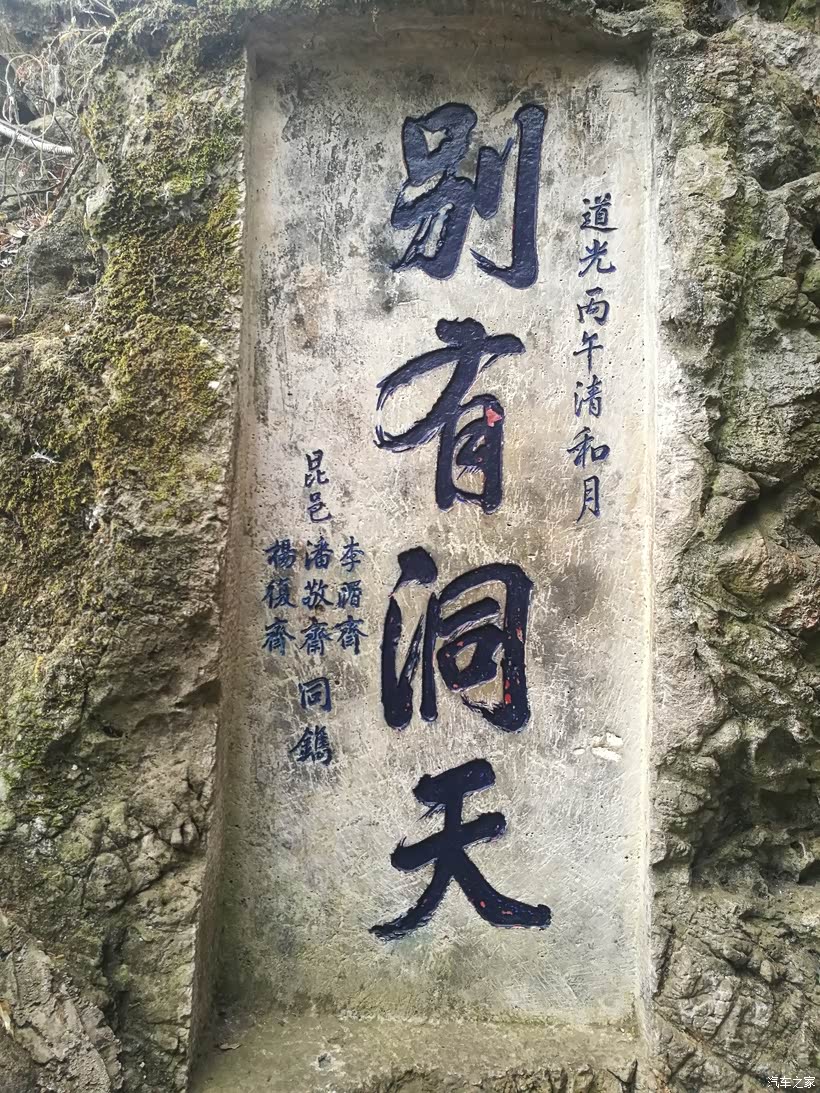 道光丙午清和月
别有洞天
昆邑
李㬇齊
潘敬齋
楊復齊
同鐫
汽车之家